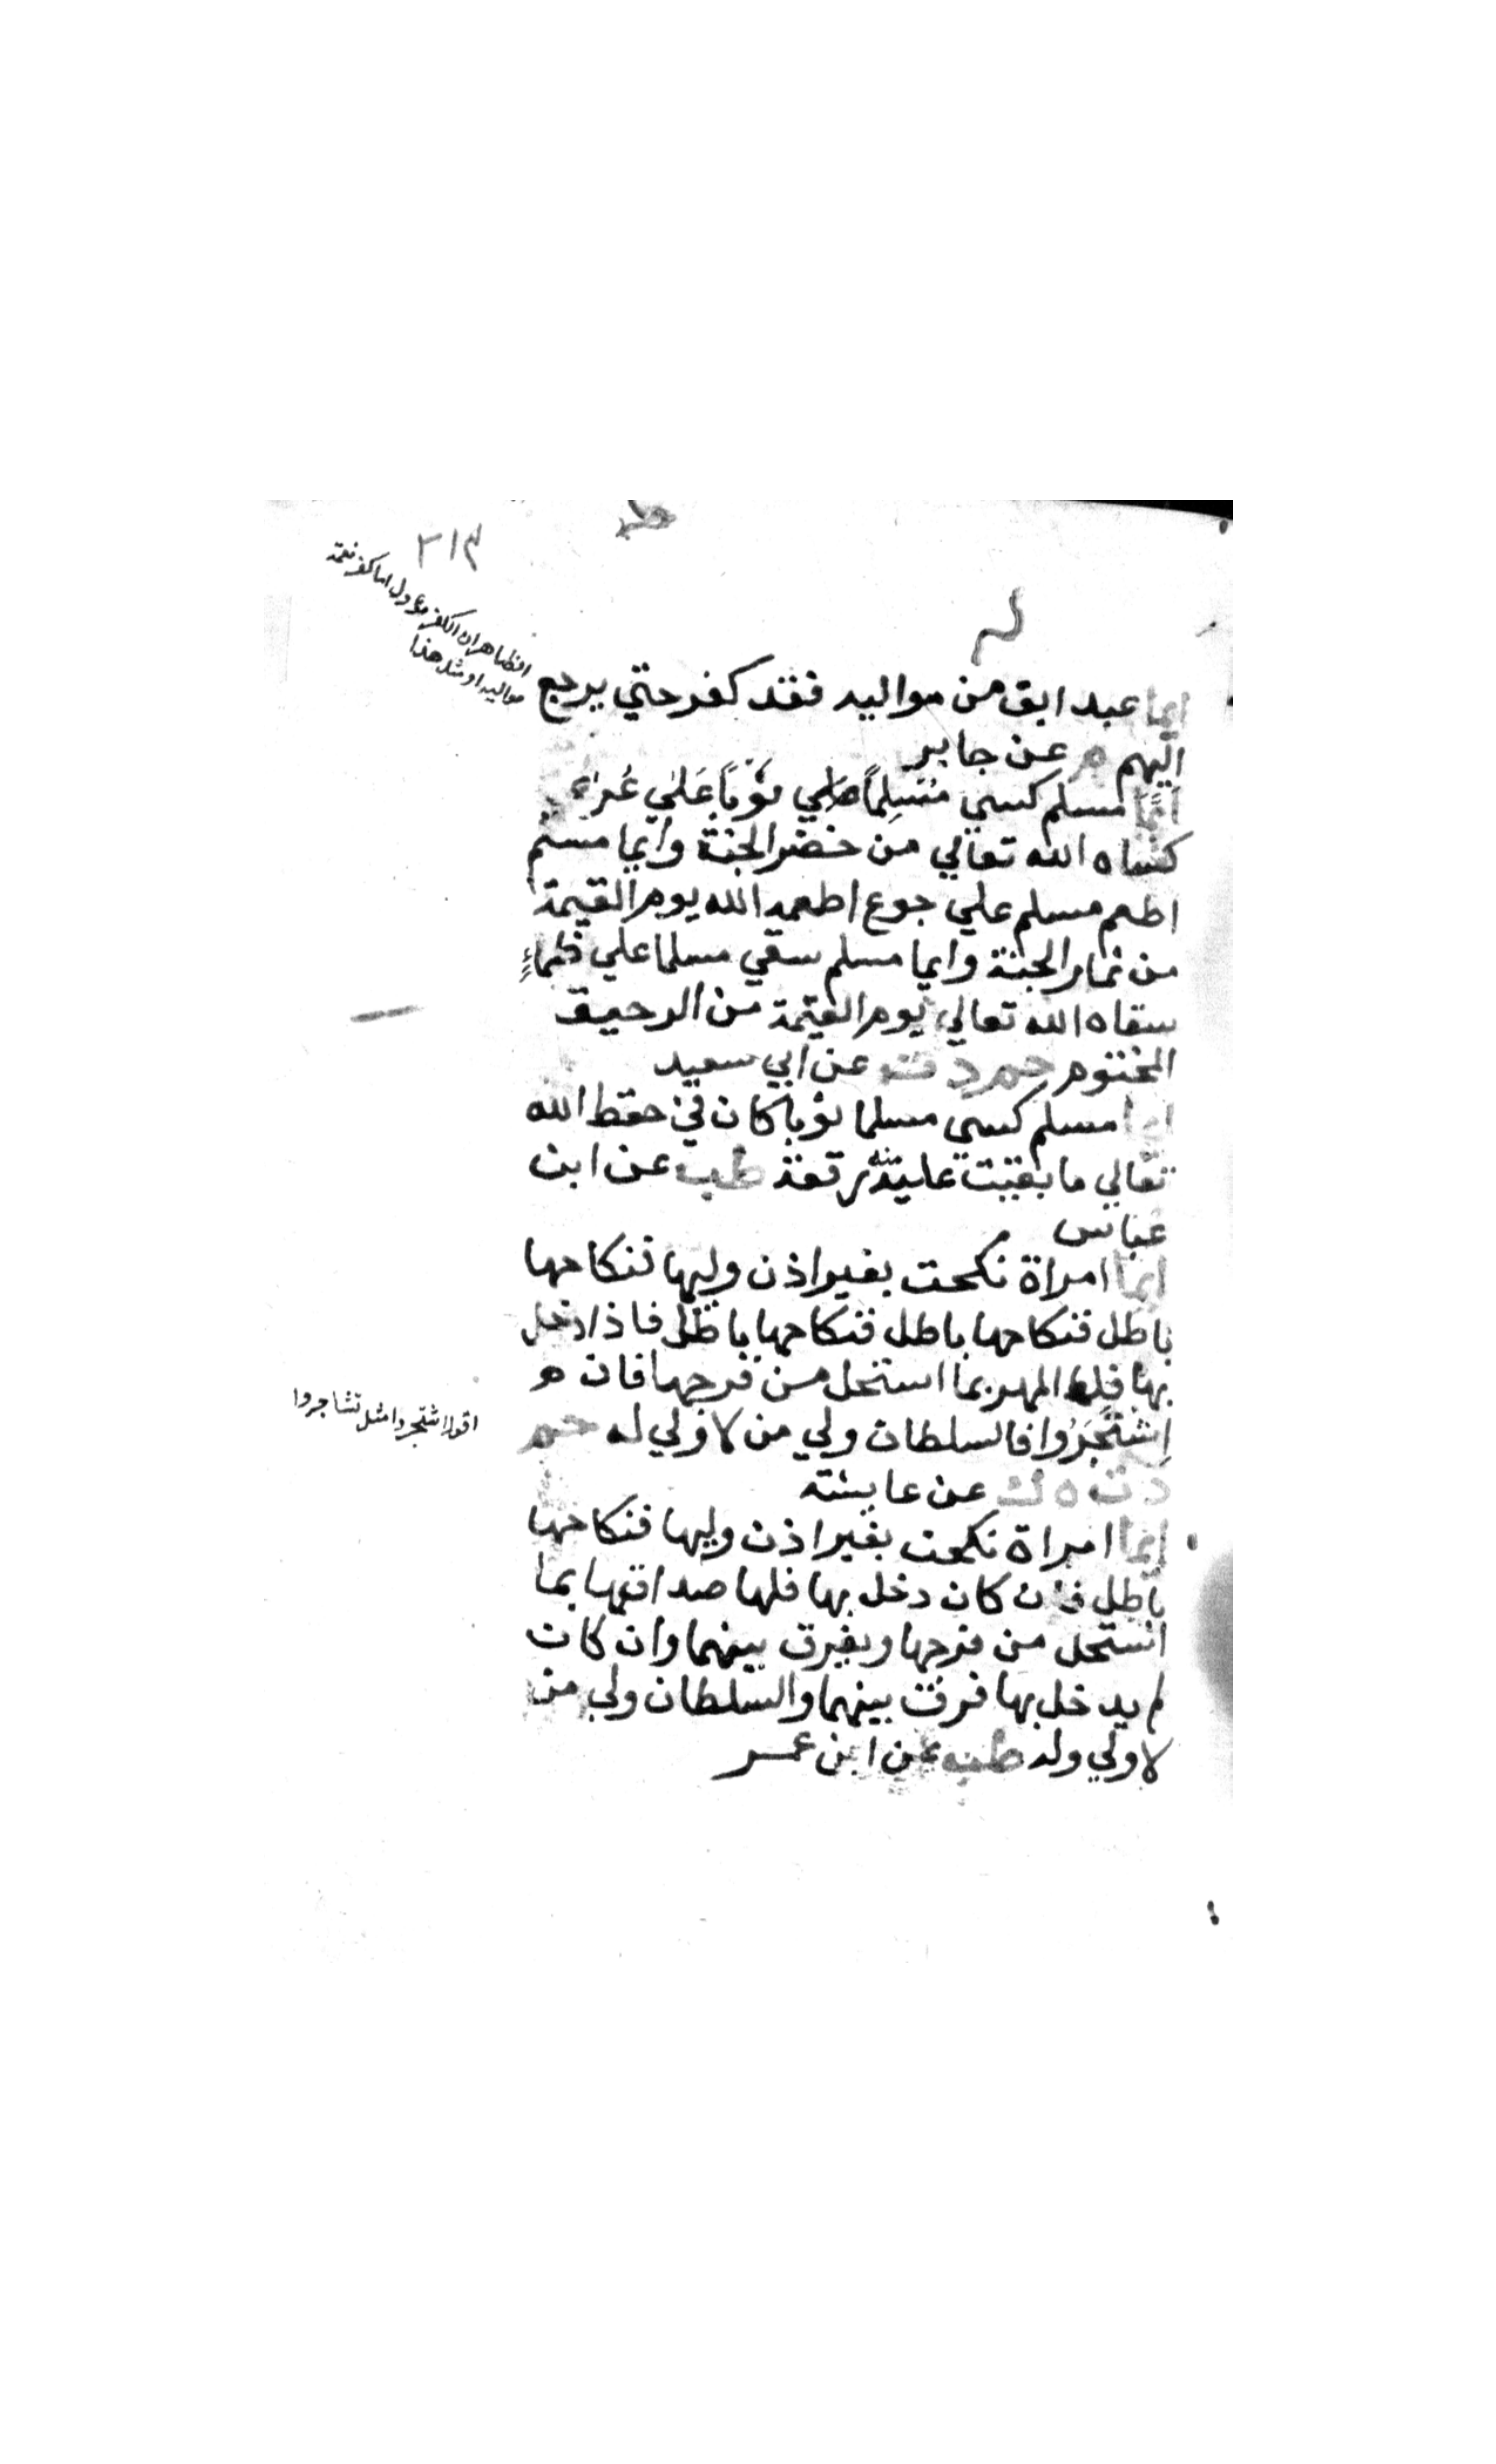 ٢١٣
اما كفر نعمة
ايما عبد ابق من مواليه فقد كفر حتي يرجع
اليهم م عن جابر
ايما مسلم كسي مسلماً ثوباً علي عُري
كساه الله تعالي من خضر الجنة وايما مسلم
اطعم مسلم علي جوع اطعمه الله يوم القيمة
من ثمار الجنة وايما مسلم سقي مسلما علي ظماءٍ
سقاه الله تعالي يوم القيمة من الرحيق
المختوم حم د ت عن ابي سعيد
ايما مسلم كسي مسلما ثوبا كان في حفظ الله
تعالي ما بقيت عليه منه رقعة طب عن ابن
عباس
ايما امراة نكحت بغير اذن وليها فنكاحها
باطل فنكاحها باطل فنكاحها باطل فاذا دخل
بها فلها المهر بما استحل من فرجها فان
اشتجَرُوا فالسلطان ولي من لا ولي له حم
د ت ه ك عن عايشته
اقول اشتجروا مثل تشاجروا
ايما امراة نكحت بغير اذن وليها فنكاحها
باطل فان كان دخل بها فلها صداقها بما
استحل من فرجها ويفرق بينهما وان كان
لم يدخل بها فرق بينهما والسلطان ولي من
لا ولي وله طب عن ابن عمر